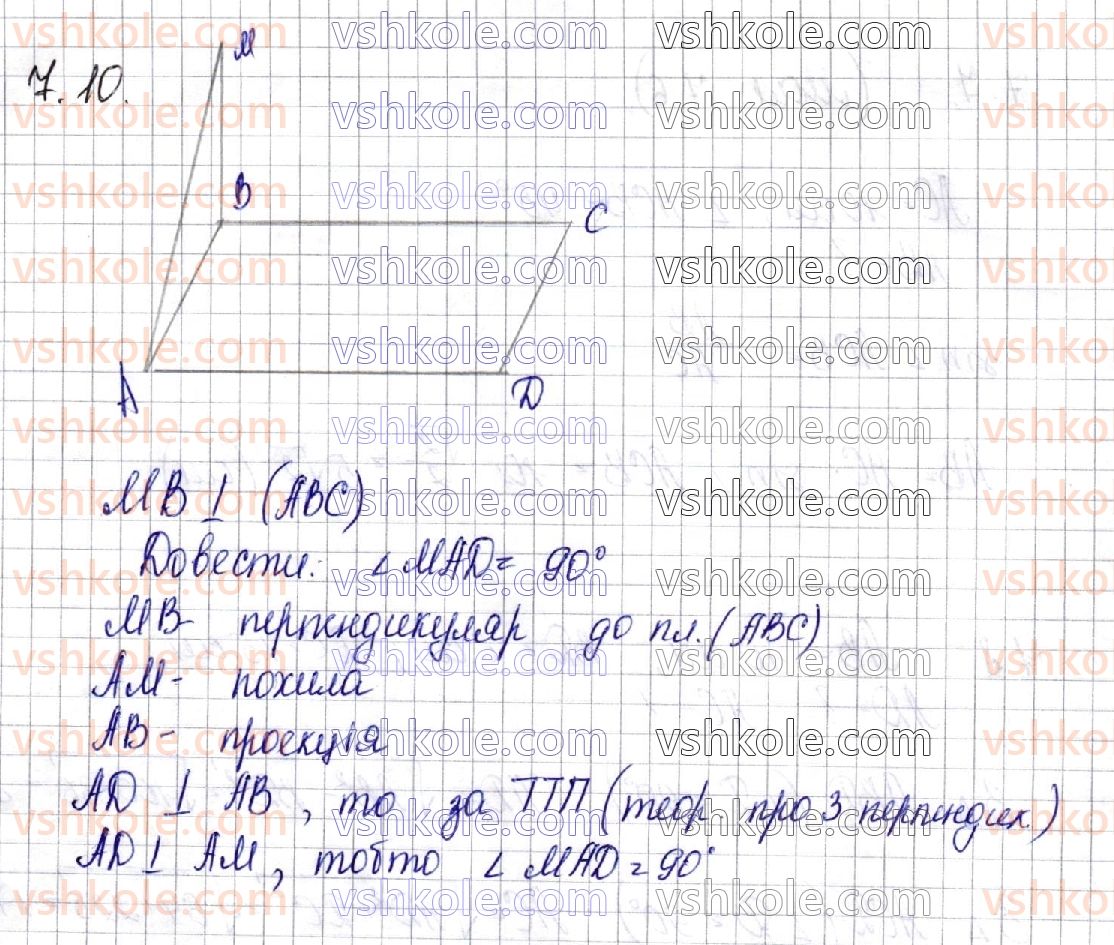 7.10.
M
B
C
A
D
MB ⊥ (ABC)
Довести: ∠MAD = 90°
MB - перпендикуляр до пл. (ABC)
AM - похила
AB - проекція
AD ⊥ AB, то за ТТП (теор про 3 перпендик.)
AD ⊥ AM, тобто ∠MAD = 90°
vshkole.com